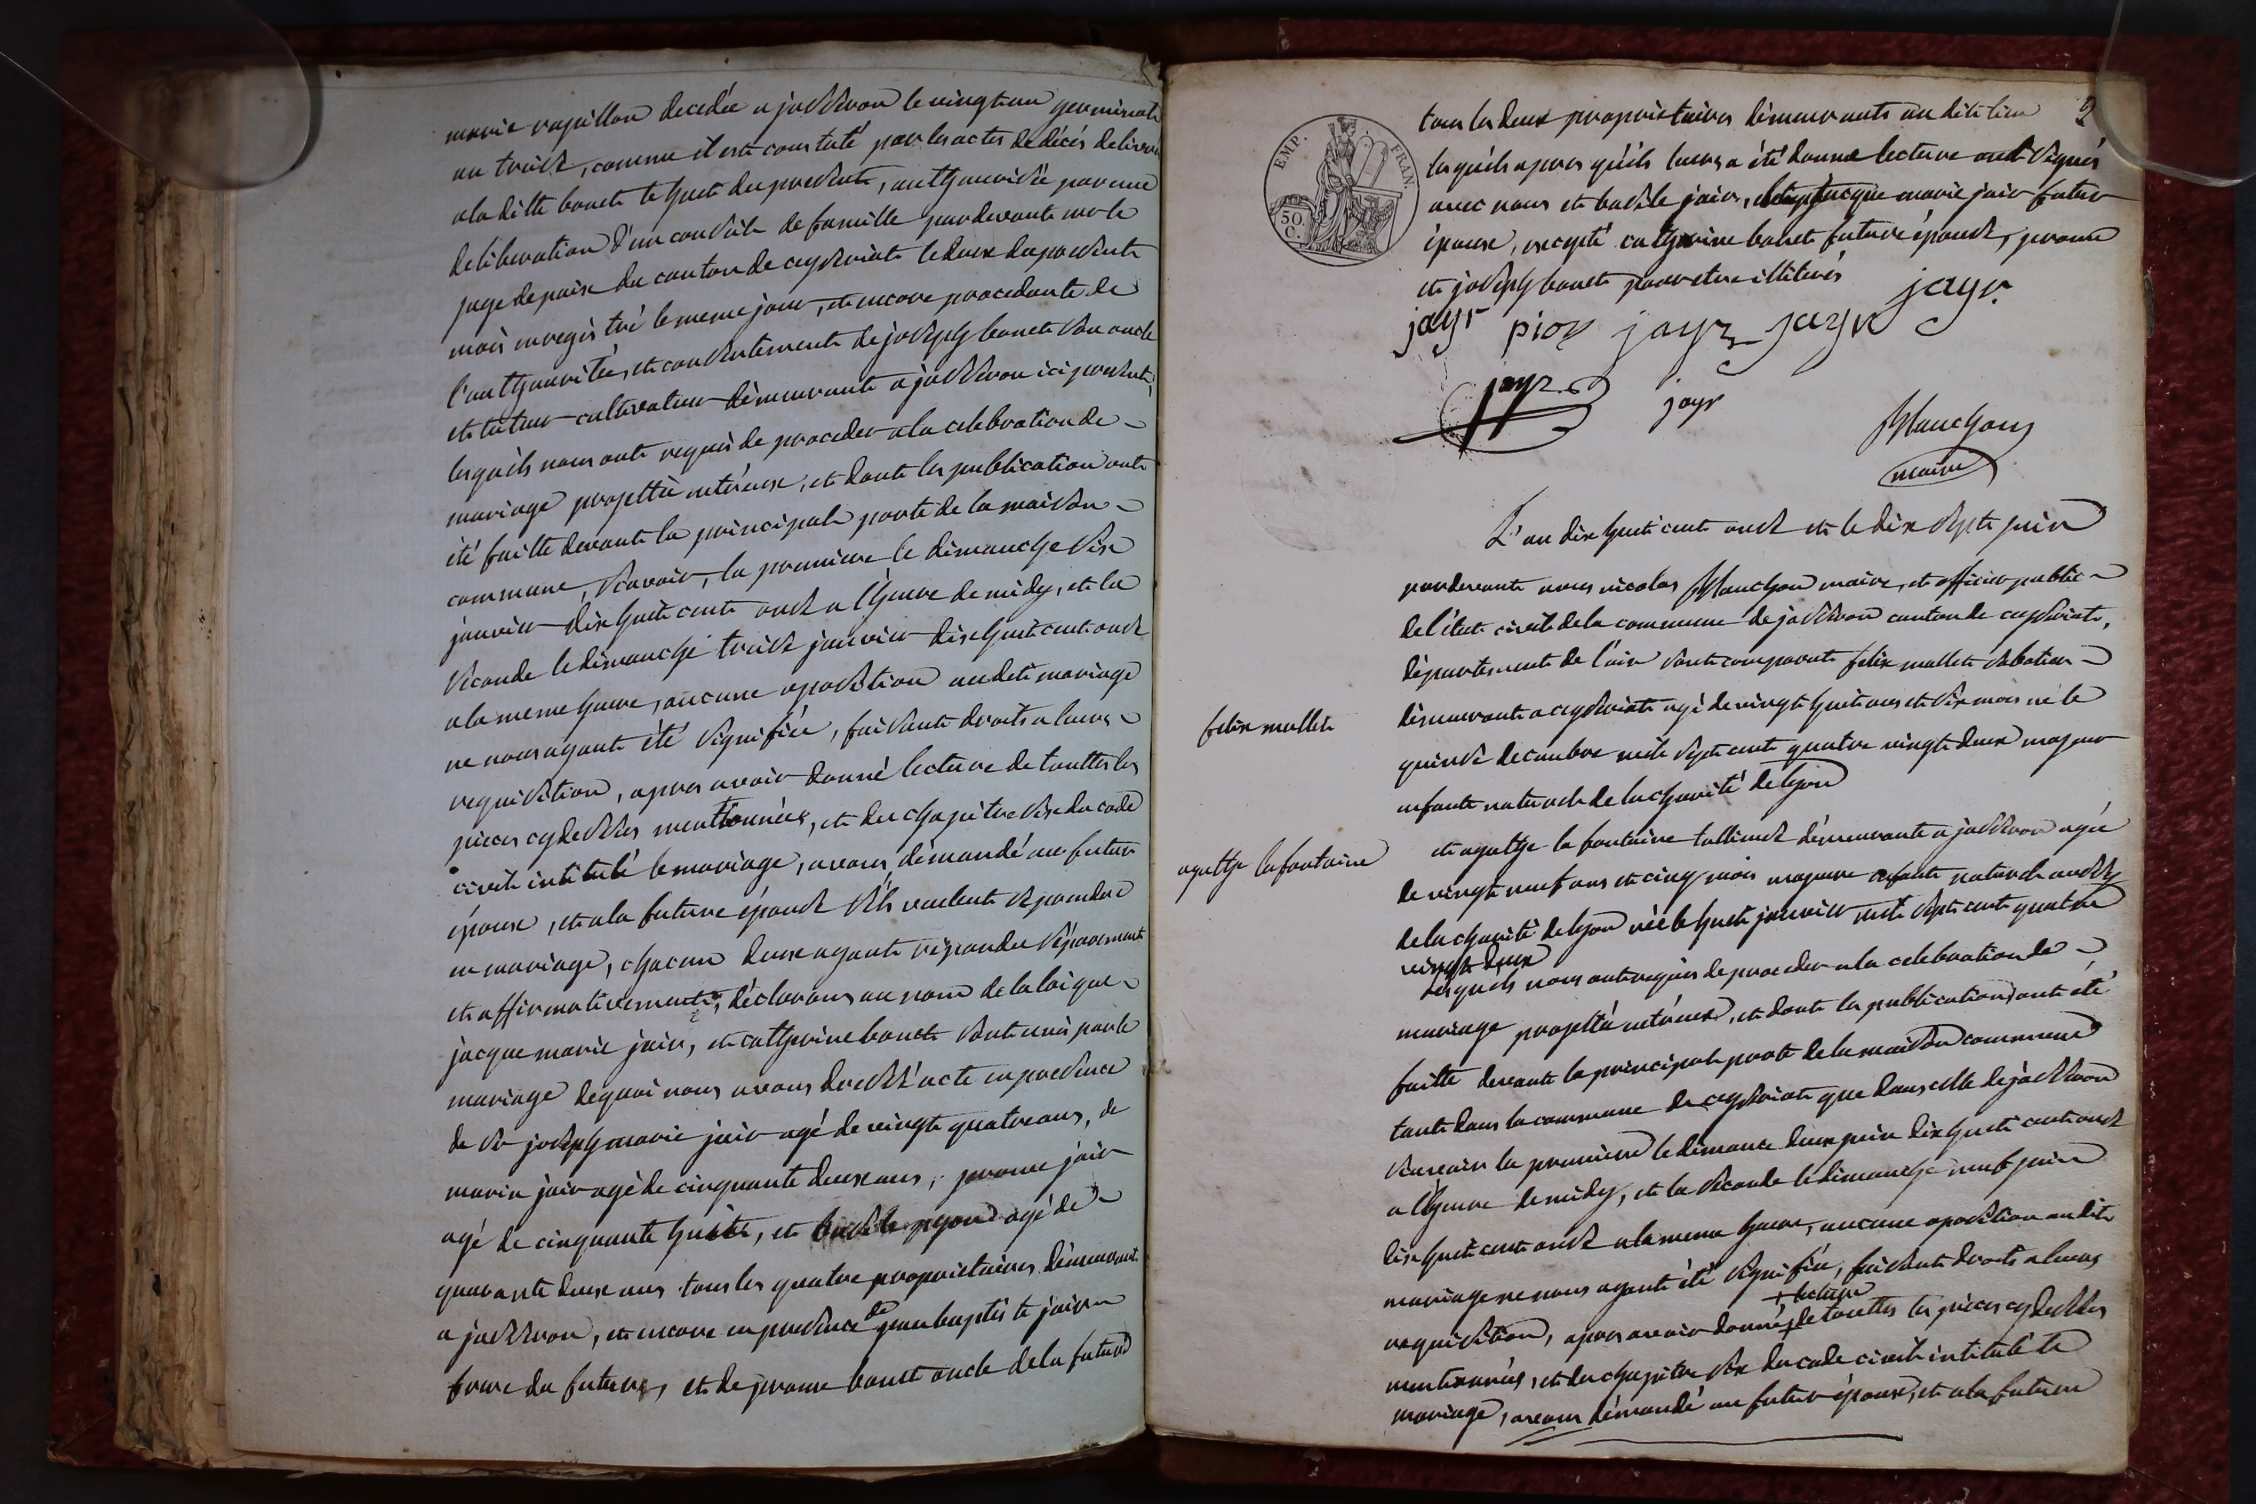 marie papillon decedée a jasseron le vingt un germinal
an treize, comme il est constaté par les actes de décés delivrés
a la ditte bonet le huit du present, authaurisée par une
deliberation d'un conseile de famille pardevant mr le
juge de paix du canton de ceyseriat le deux du present
mois enregistré le meme jour, et encore procedante de
l'authaurité, et consentement de joseph bonet son oncle
et tuteur cultivateur démeurant a jasseron ici present,
lesquéls nous ont requis de proceder a la celebration de
mariage projetté entr'eux, et dont les publication ont
été faitte devant la principale porte de la maison
commune, scavoir, la premiere le dimanche six
janvier dix huit cent onze a l'heure de midy, et la
seconde le dimanche treize janvier dix huit cent onze
a la meme heure, aucune oposition au dit mariage
ne nous ayant été signifiée, faisant droit a leurs
requisition, apres avoir donné lecture de touttes les
pieces cy dessus mentionnées, et du chapitre six du code
civil intitulé le mariage, avons démandé au futur
époux, et a la future épouse s'ils veulent se prendre
en mariage, chacun deux ayant répondu séparement
et affirmativement, déclarons au nom de la loi que
jacque marie jair, et catherine bonet sont unis par le
mariage de quoi nous avons dressé acte en presence
de sr joseph marie jair agé de vingt quatre ans, de
marin jair agé de cinquante deux ans, jerome jair
agé de cinquante huit, et basile pyon agé de
quarante deux ans tous les quatre proprietaires démeurant
a jasseron, et encore en presence de jean baptiste jair
frere du futur, et de jerome bonet oncle de la future
EMP. FRAN.
50 C.
tous les deux proprietaires démeurants au dit lieu
lesquéls apres qu'ils leurs a été donné lecture ont signés
avec nous et basile jair, jacque marie jair futur
époux, excepté catherine bonet future épouse, jerome
et joseph bonet pour etre illiterés
jayr pion jayr jayr jayr
jayr jayr
Planchon
maire
L'an dix huit cent onze et le dix sept juin
pardevant nous nicolas Planchon maire, et officier public
de l'état civil de la commune de jasseron canton de ceyseriat,
département de l'ain sont comparut felix mallet sabotier
démeurant a ceyseriat agé de vingt huit ans et six mois né le
quinse decembre mile sept cent quatre vingt deux majeur
enfant naturele de la charité de lyon
felix mallet
et agathe la fontaine tallieuse démeurante a jasseron agée
agathe lafontaine
de vingt neuf ans et cinq mois majeure enfante naturele aussy
de la charité de lyon née le huit janvier mile sept cent quatre
vingt deux
lesquéls nous ont requis de proceder a la celebration de
mariage projetté entr'eux, et dont les publications ont été
faitte devant la principale porte de la maison commune
tant dans la commune de ceyseriat que dans celle de jasseron
scavoir la premiere le dimance deux juin dix huit cent onze
a l'heure de midy, et la seconde le dimanche neuf juin
dix huit cent onze a la meme heure, aucune oposition au dit
mariage ne nous ayant été signifiée, faisant droit a leurs
+ lecture
requisition, apres avoir donné + de touttes les pieces cy dessus
mentionnées, et du chapitre six du code civil intitulé le
mariage, avons démandé au futur époux, et a la future